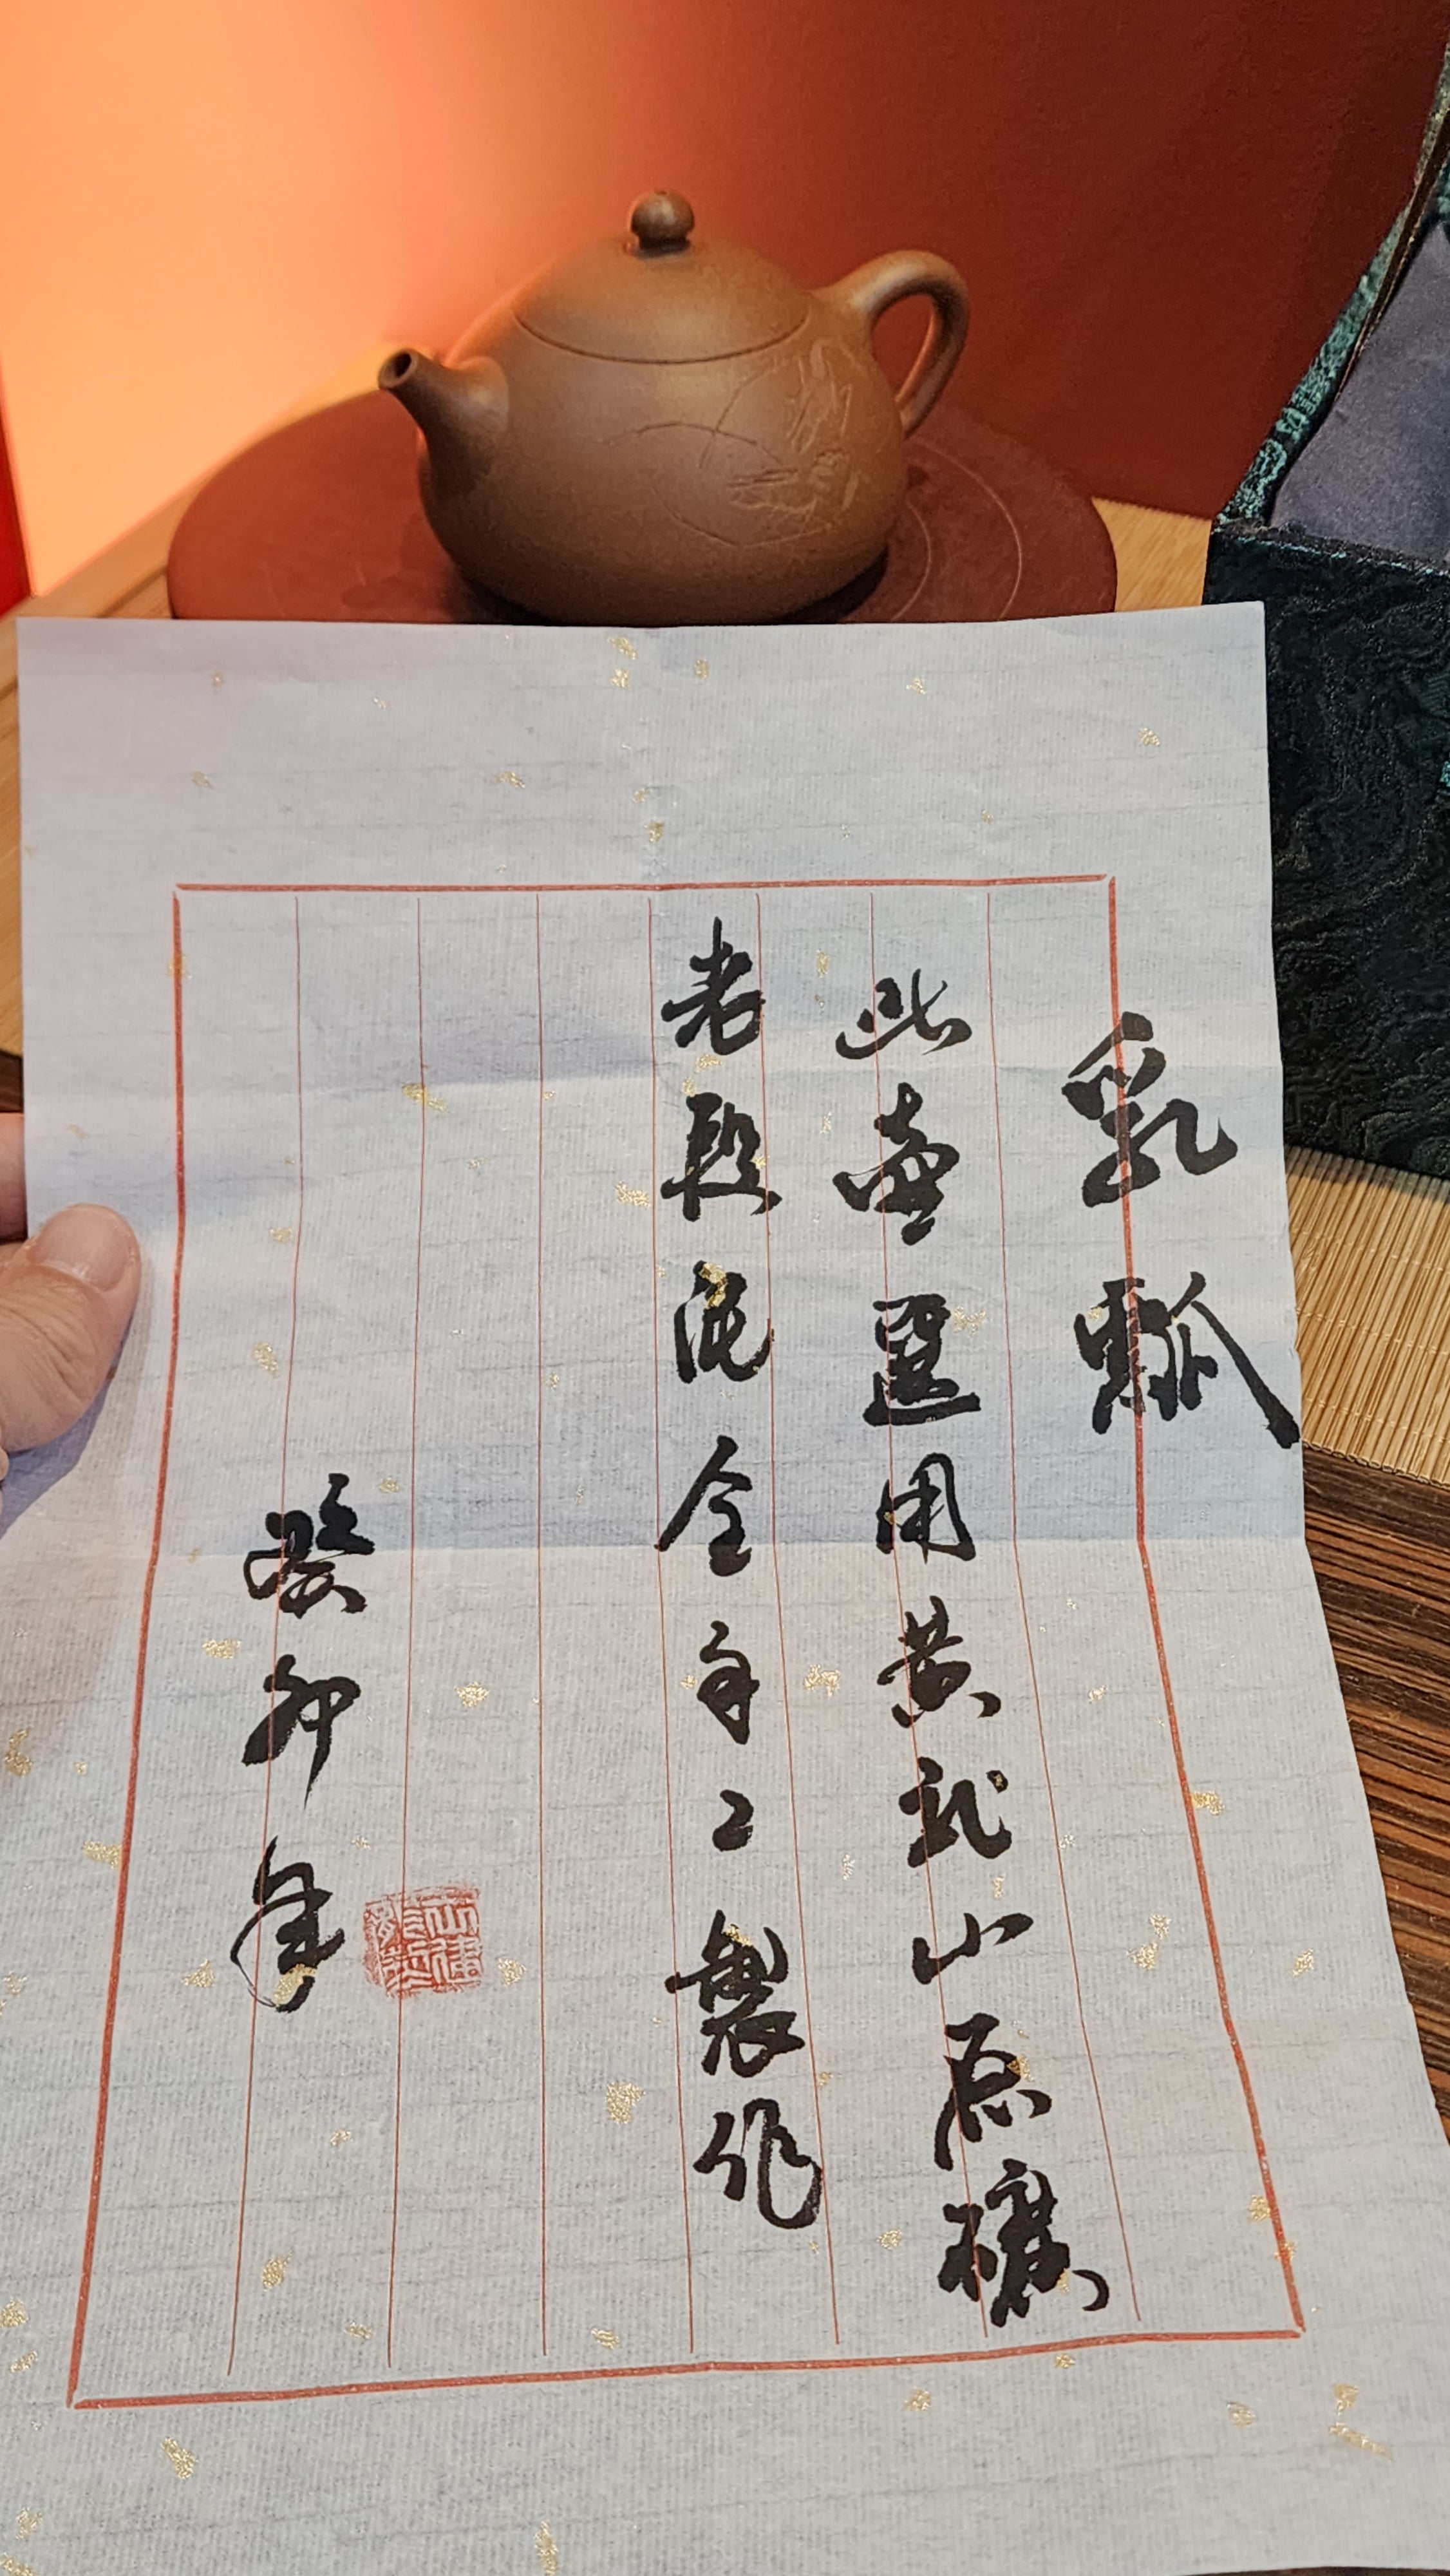 乳瓢
此壺選用黄龙山原礦
老段泥全手工製作
癸卯年